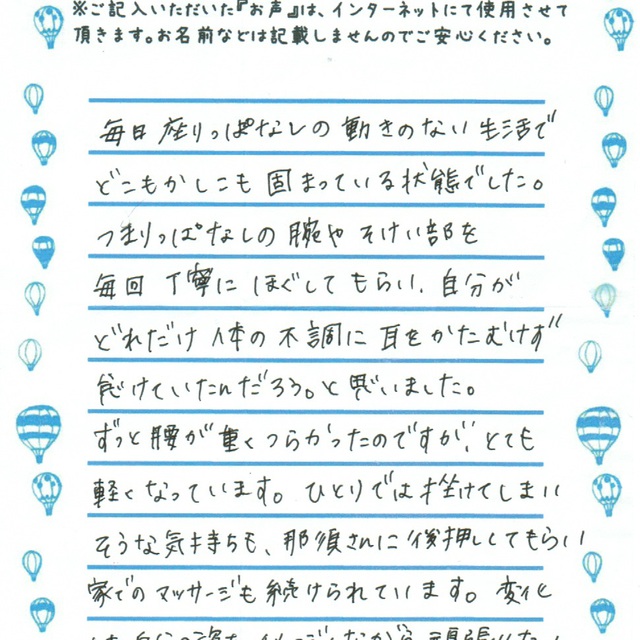 ※ご記入いただいた『お声』は、インターネットにて使用させて
頂きます。お名前などは記載しませんのでご安心ください。
毎日座りっぱなしの動きのない生活で
どこもかしこも固まっている状態でした。
つまりっぱなしの腕や そけい部を
毎回丁寧に ほぐしてもらい、自分が
どれだけ体の不調に耳をかたむけず
怠けていたんだろう。と思いました。
ずっと腰が重くつらかったのですが、とても
軽くなっています。ひとりでは挫けてしまい
そうな気持ちも、那須さんに後押ししてもらい
家でのマッサージも続けられています。変化